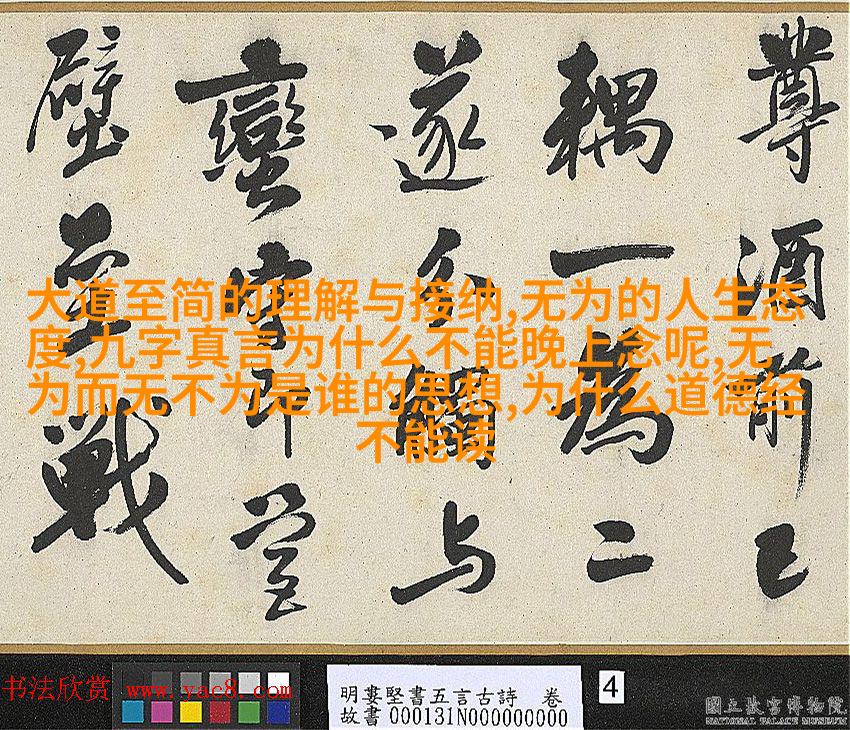 尊酒前己
耦一為二
遂分爾与
蠻
壁 戰
大道至简的理解与接纳,无为的人生态
度,九字真言为什么不能晚上念呢,无
为而无不为是谁的思想,为什么道德经
不能读
书法欣赏 www.yac8.com
明婁堅書五言古詩 卷
故書 000131N000000000
4
國立故宮博物院
NATIONAL PALACE MUSEUM